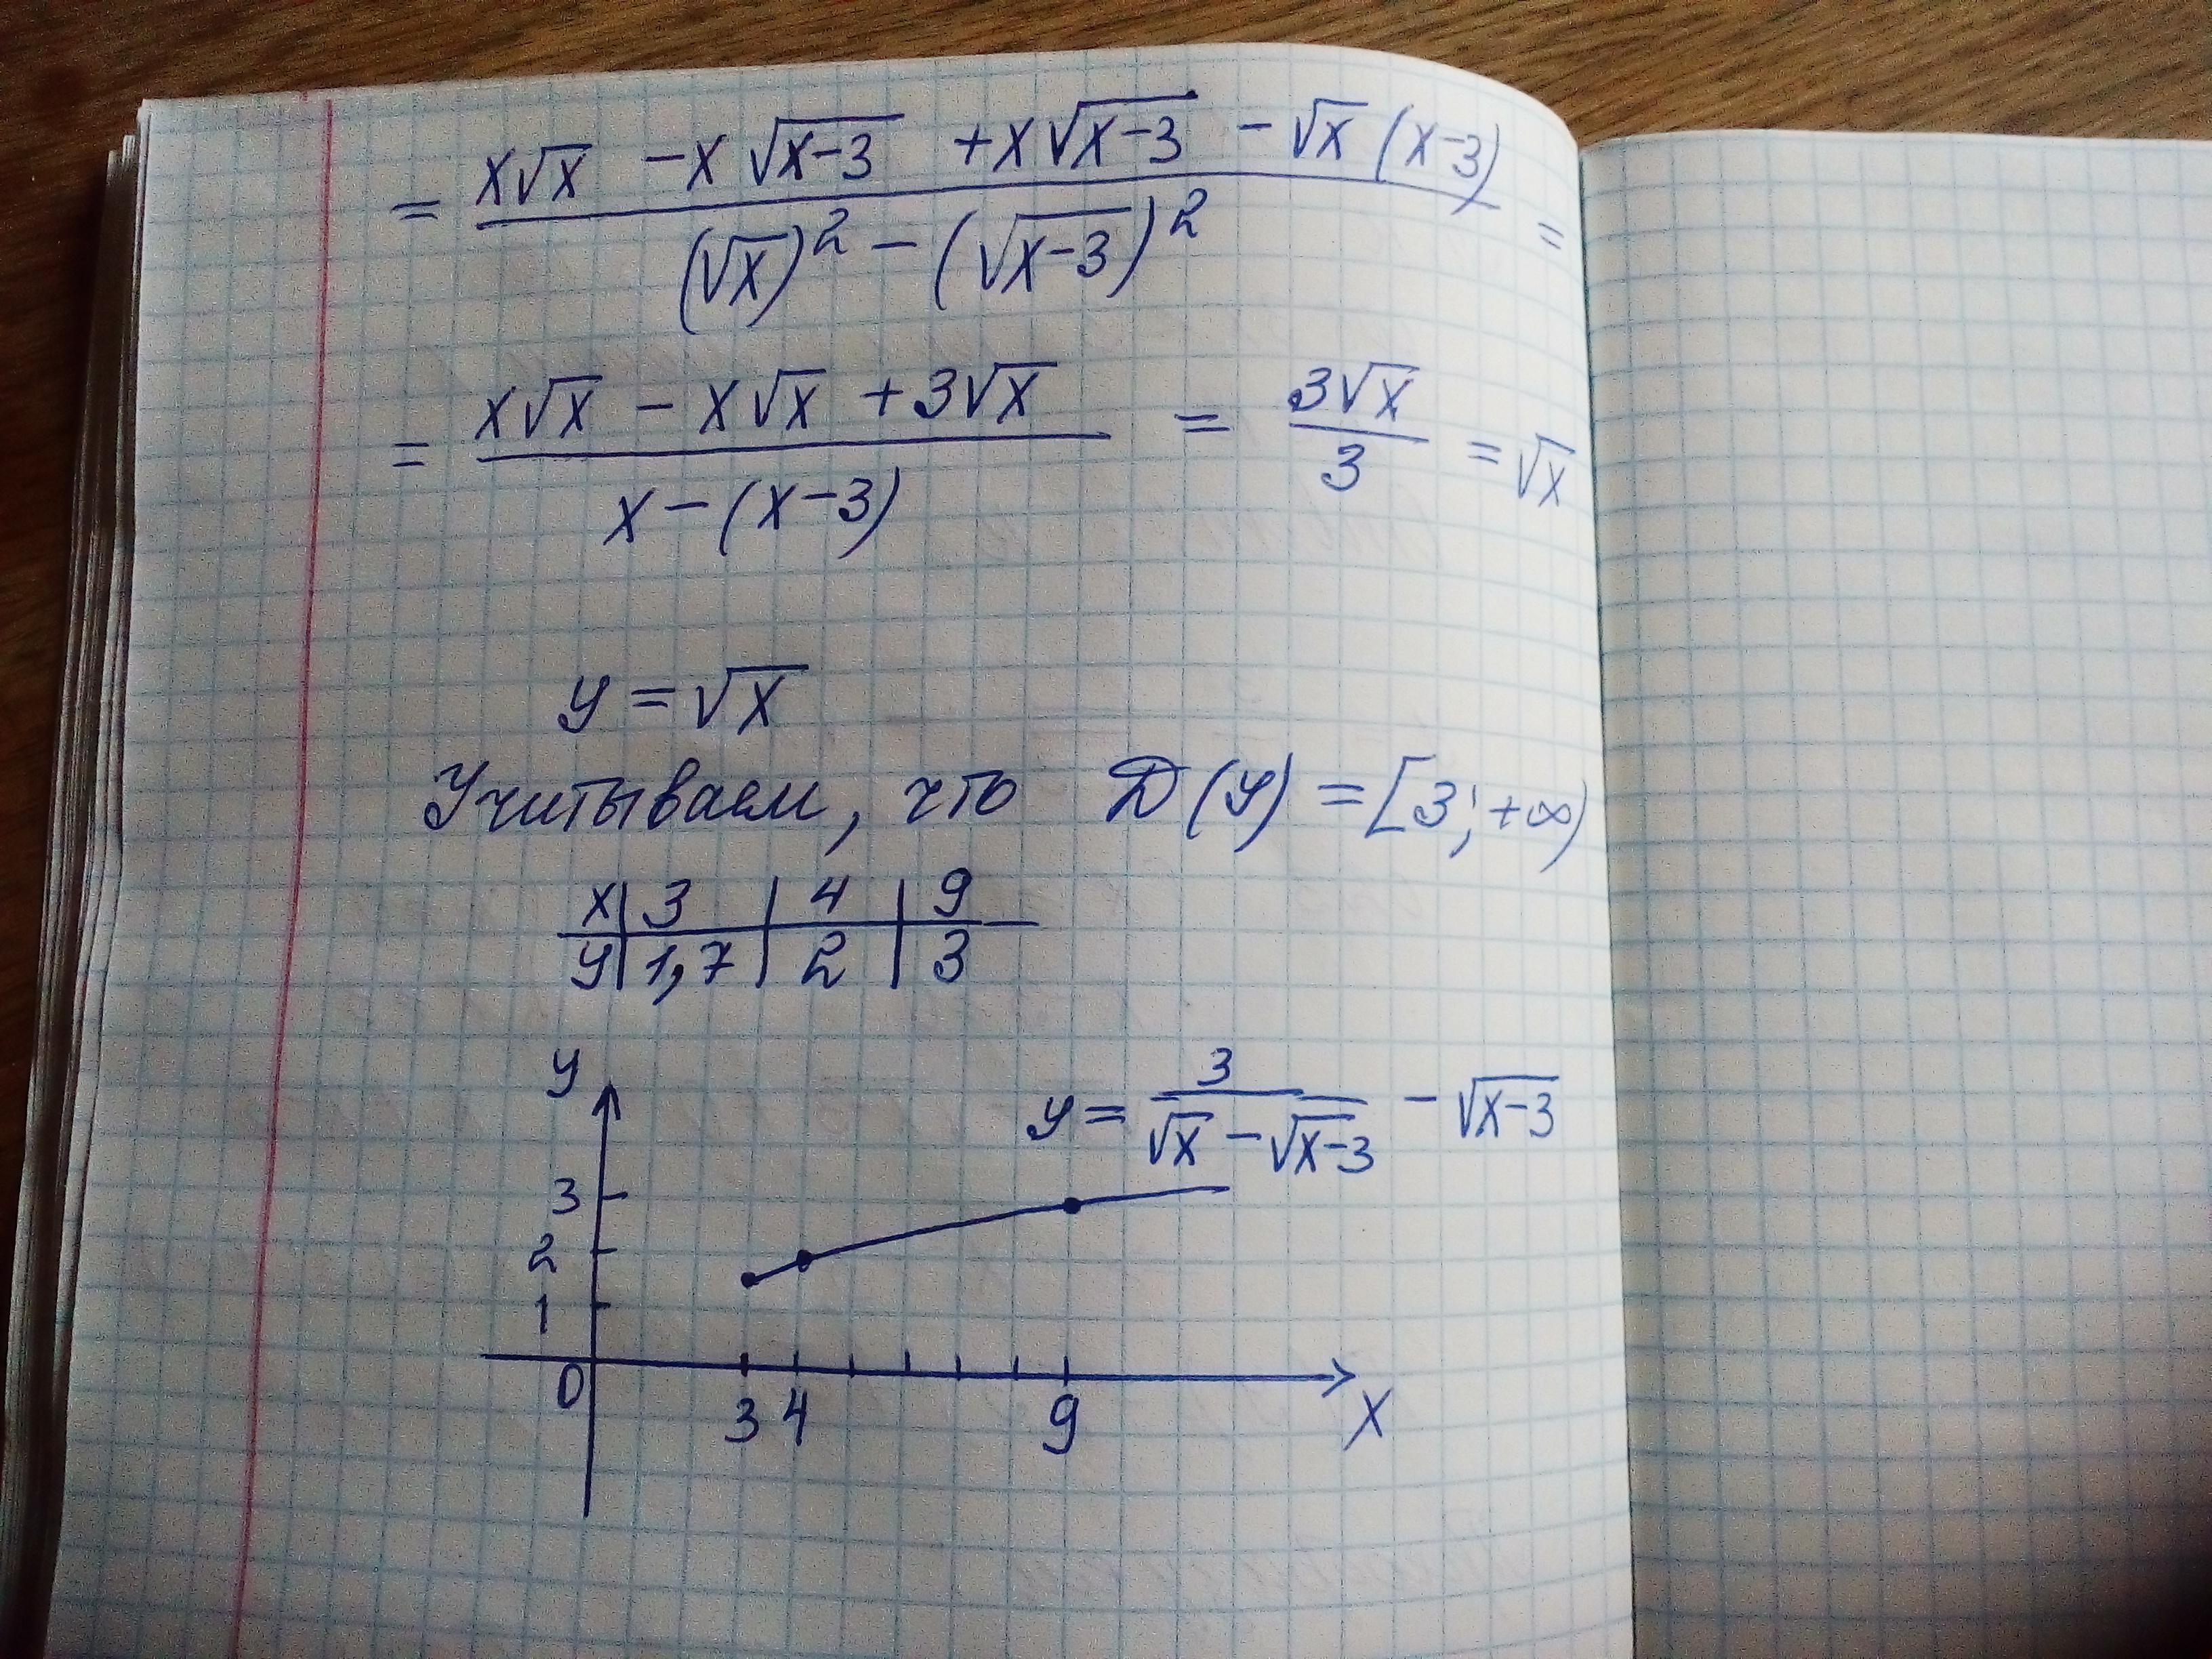 = (x√x − x√(x−3) + x√(x−3) − √x (x−3)) / ((√x)² − (√(x−3))²) =
= (x√x − x√x + 3√x) / (x − (x−3)) = 3√x / 3 = √x
y = √x
Учитываем, что D(y) = [3; +∞)
x | 3 | 4 | 9
y | 1,7 | 2 | 3
y
y = 3 / (√x − √(x−3)) − √(x−3)
3
2
1
0 3 4 9 x